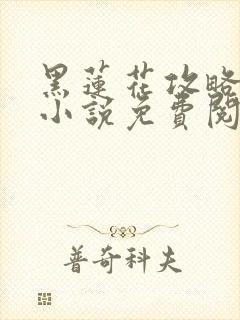 黑蓮花攻略
小說免費閱
普奇科夫